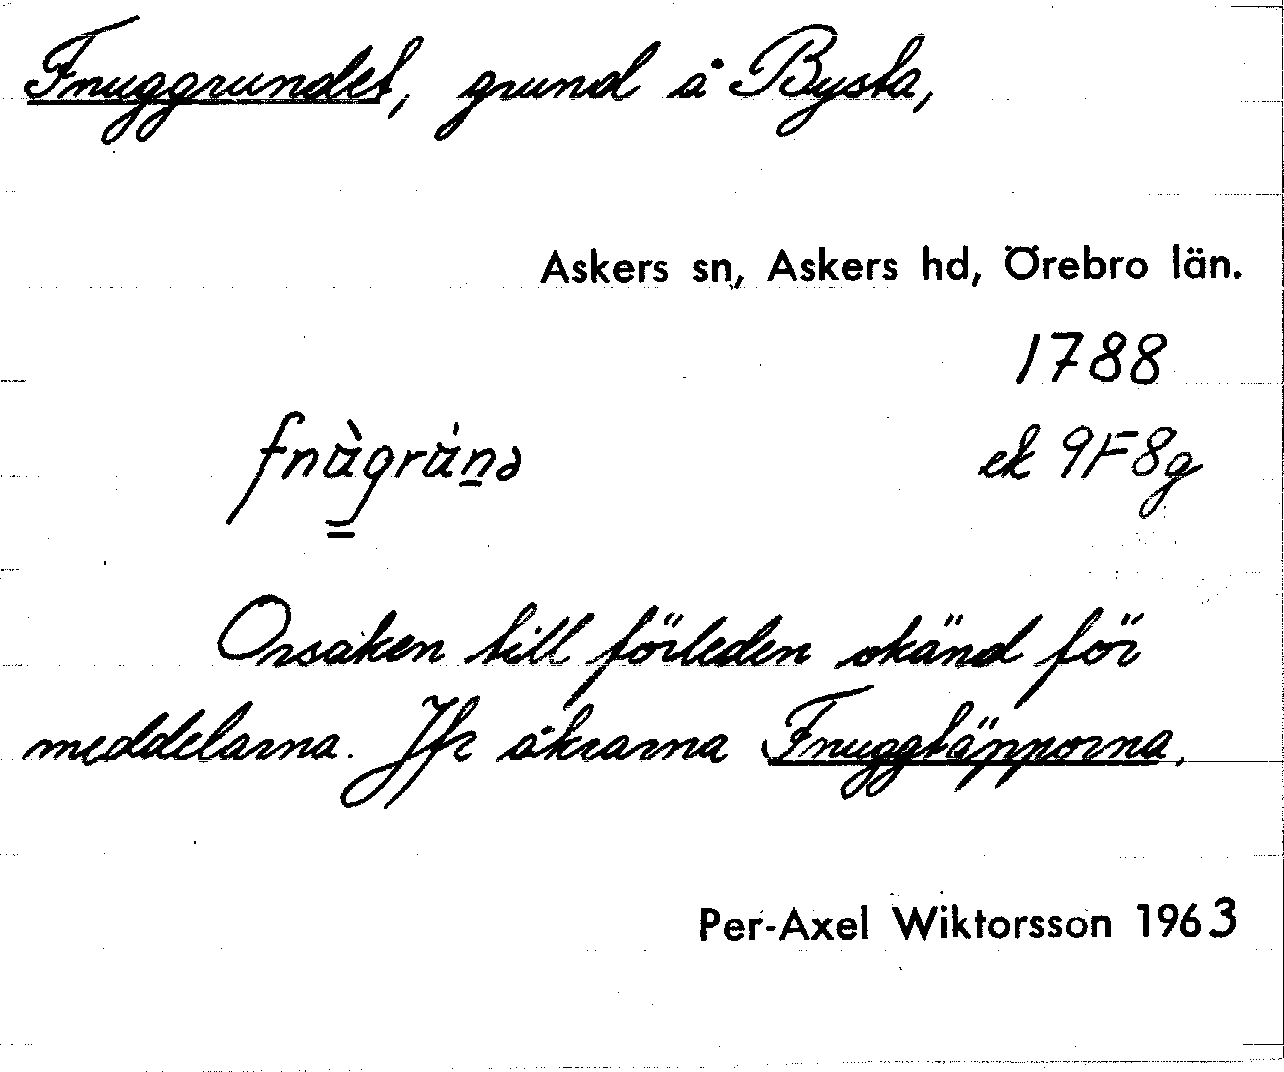 Fnuggrundet, grund å Bysta,
Askers sn, Askers hd, Örebro län.
1788
ek 9F8g
Orsaken till förleden okänd för
meddelarna. Jfr åkrarna Fnuggtäpporna.
Per-Axel Wiktorsson 1963